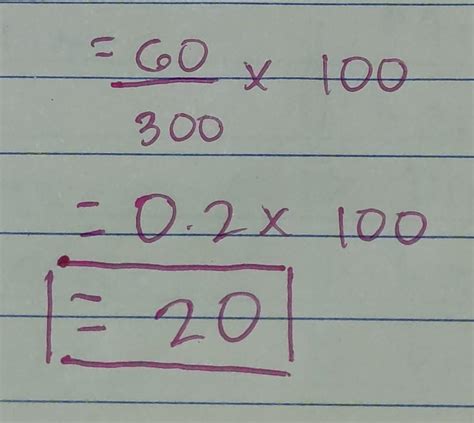 = 60
300 x 100
= 0.2 x 100
= 20